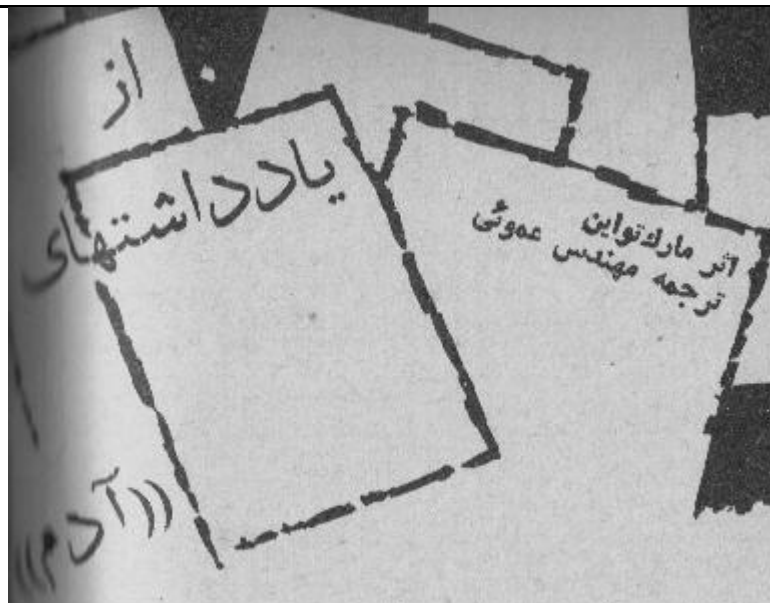 از
یادداشتهای
((آدم))
اثر مارك تواین
ترجمه مهندس عموئی